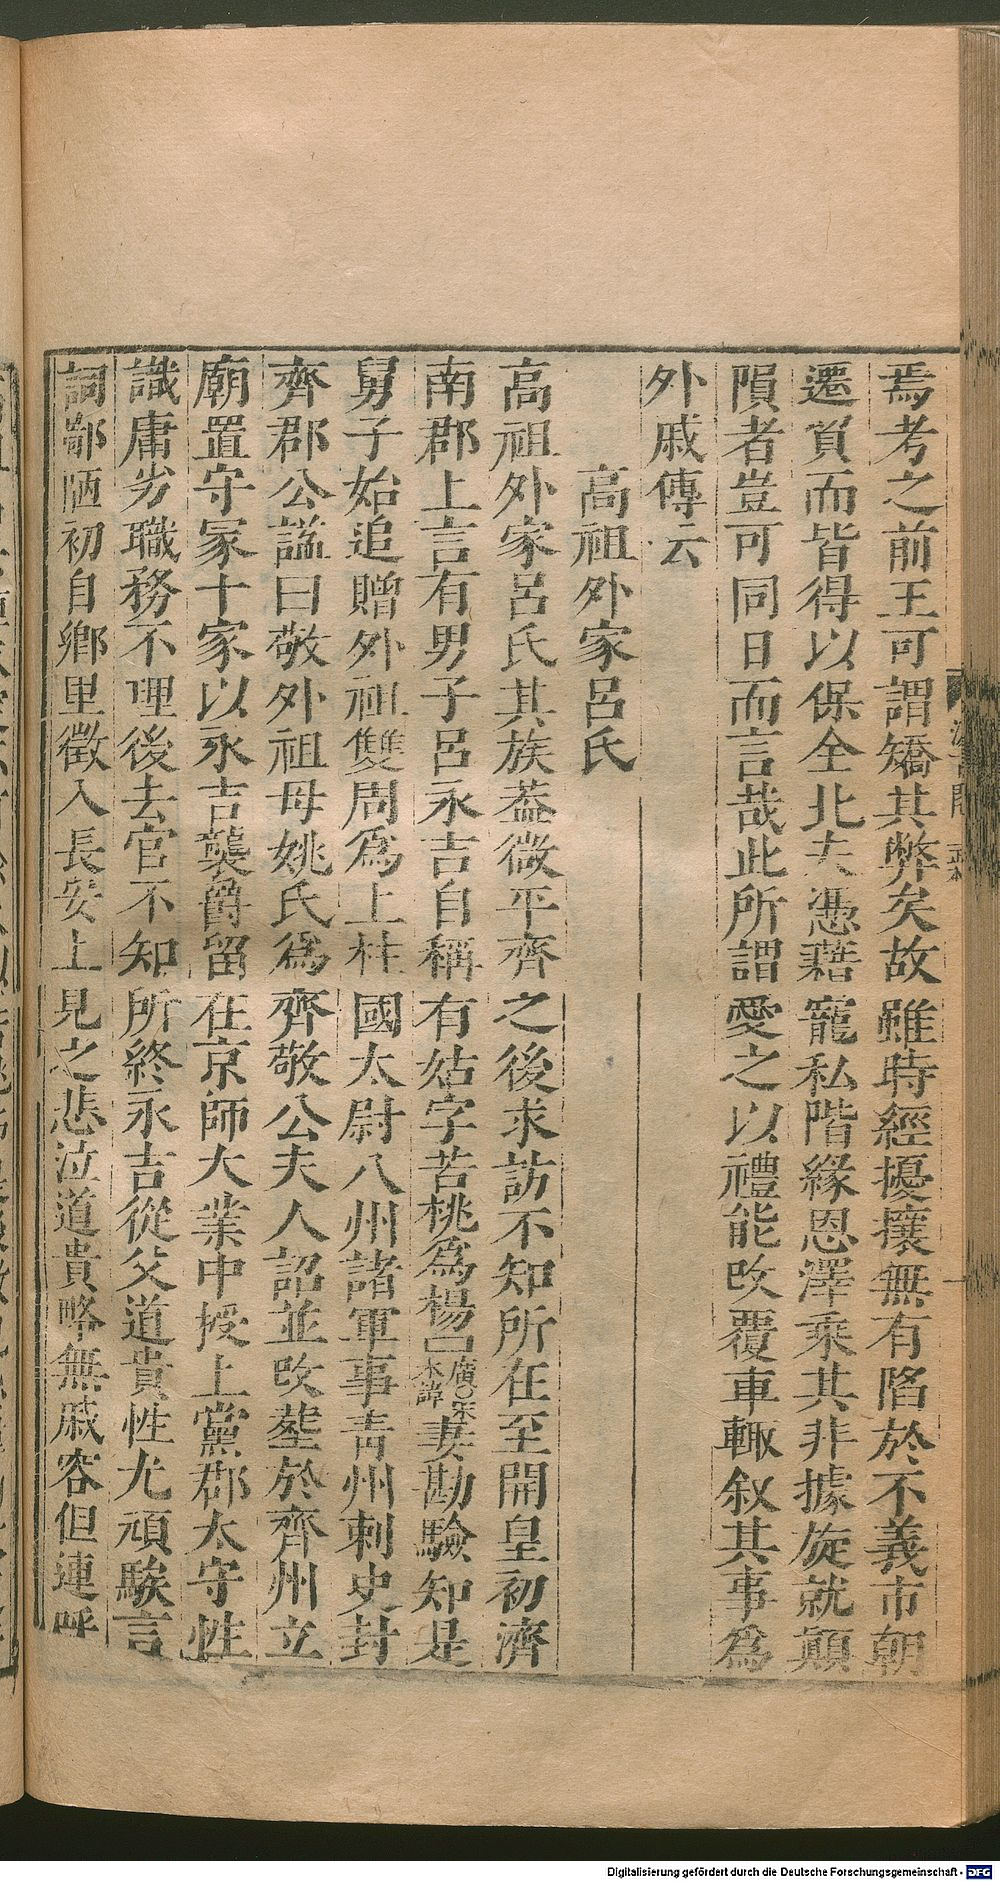 焉考之前王可謂矯其弊矣故雖時經擾攘無有陷於不義市朝
遷貿而皆得以保全比夫憑藉寵私階緣恩澤乘其非據旋就顛
隕者豈可同日而言哉此所謂愛之以禮能改覆車輙叙其事為
外戚傳云
高祖外家呂氏
高祖外家呂氏其族葢微平齊之後求訪不知所在至開皇初濟
南郡上言有男子呂永吉自稱有姑字苦桃為楊廣○宋本諱妻勘驗知是
舅子始追贈外祖雙周為上柱國太尉八州諸軍事青州刺史封
齊郡公諡曰敬外祖母姚氏為齊敬公夫人詔並改葬於齊州立
廟置守冢十家以永吉襲爵留在京師大業中授上黨郡太守性
識庸劣職務不理後去官不知所終永吉從父道貴性尤頑騃言
詞鄙陋初自鄉里徵入長安上見之悲泣道貴略無戚容但連呼
Digitalisierung gefördert durch die Deutsche Forschungsgemeinschaft - DFG